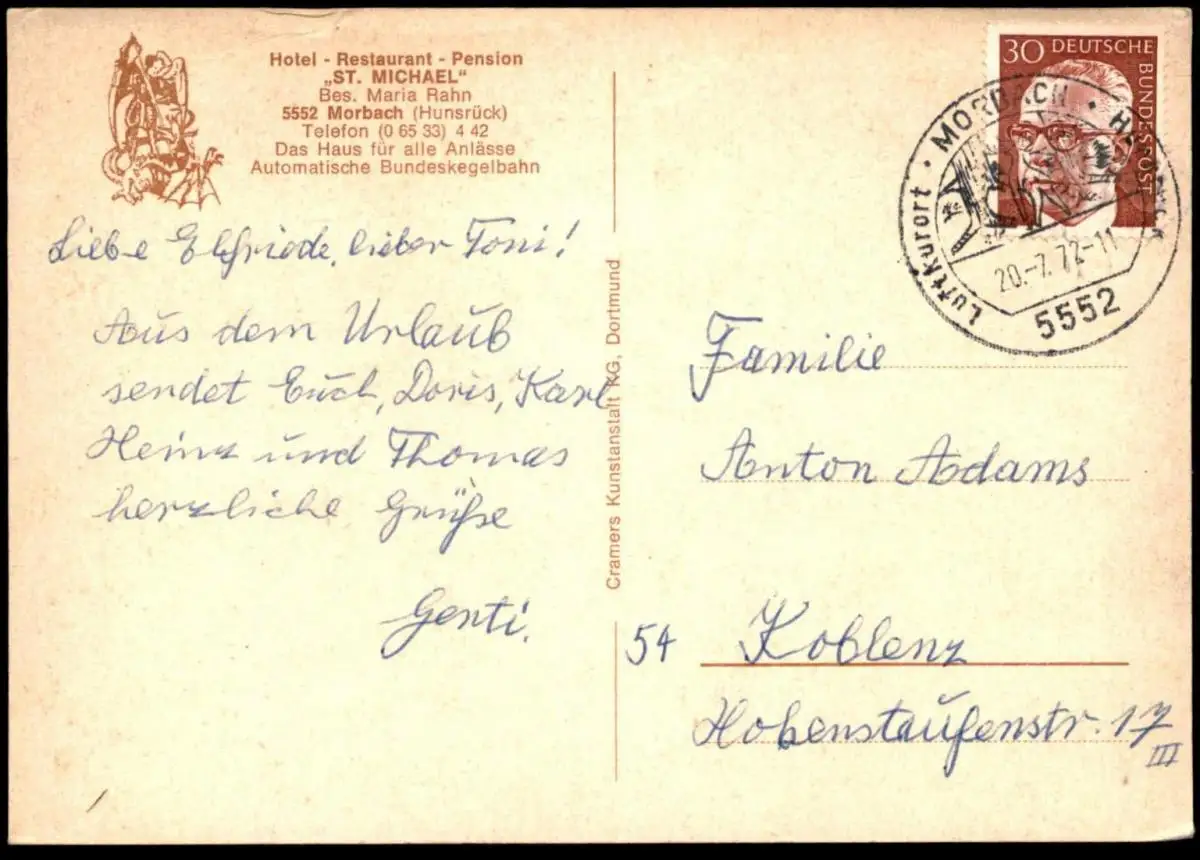 Hotel - Restaurant - Pension
„ST. MICHAEL"
Bes. Maria Rahn
5552 Morbach (Hunsrück)
Telefon (0 65 33) 4 42
Das Haus für alle Anlässe
Automatische Bundeskegelbahn
Liebe Elfriede, lieber Toni!
Aus dem Urlaub
sendet Euch, Doris, Karl
Heinz und Thomas
herzliche Grüße
Genti.
Cramers Kunstanstalt KG, Dortmund
30 DEUTSCHE BUNDESPOST
Luftkurort · MORBACH ·
20.-7.72-11
5552
Familie
Anton Adams
54 Koblenz
Hohenstaufenstr. 17
III